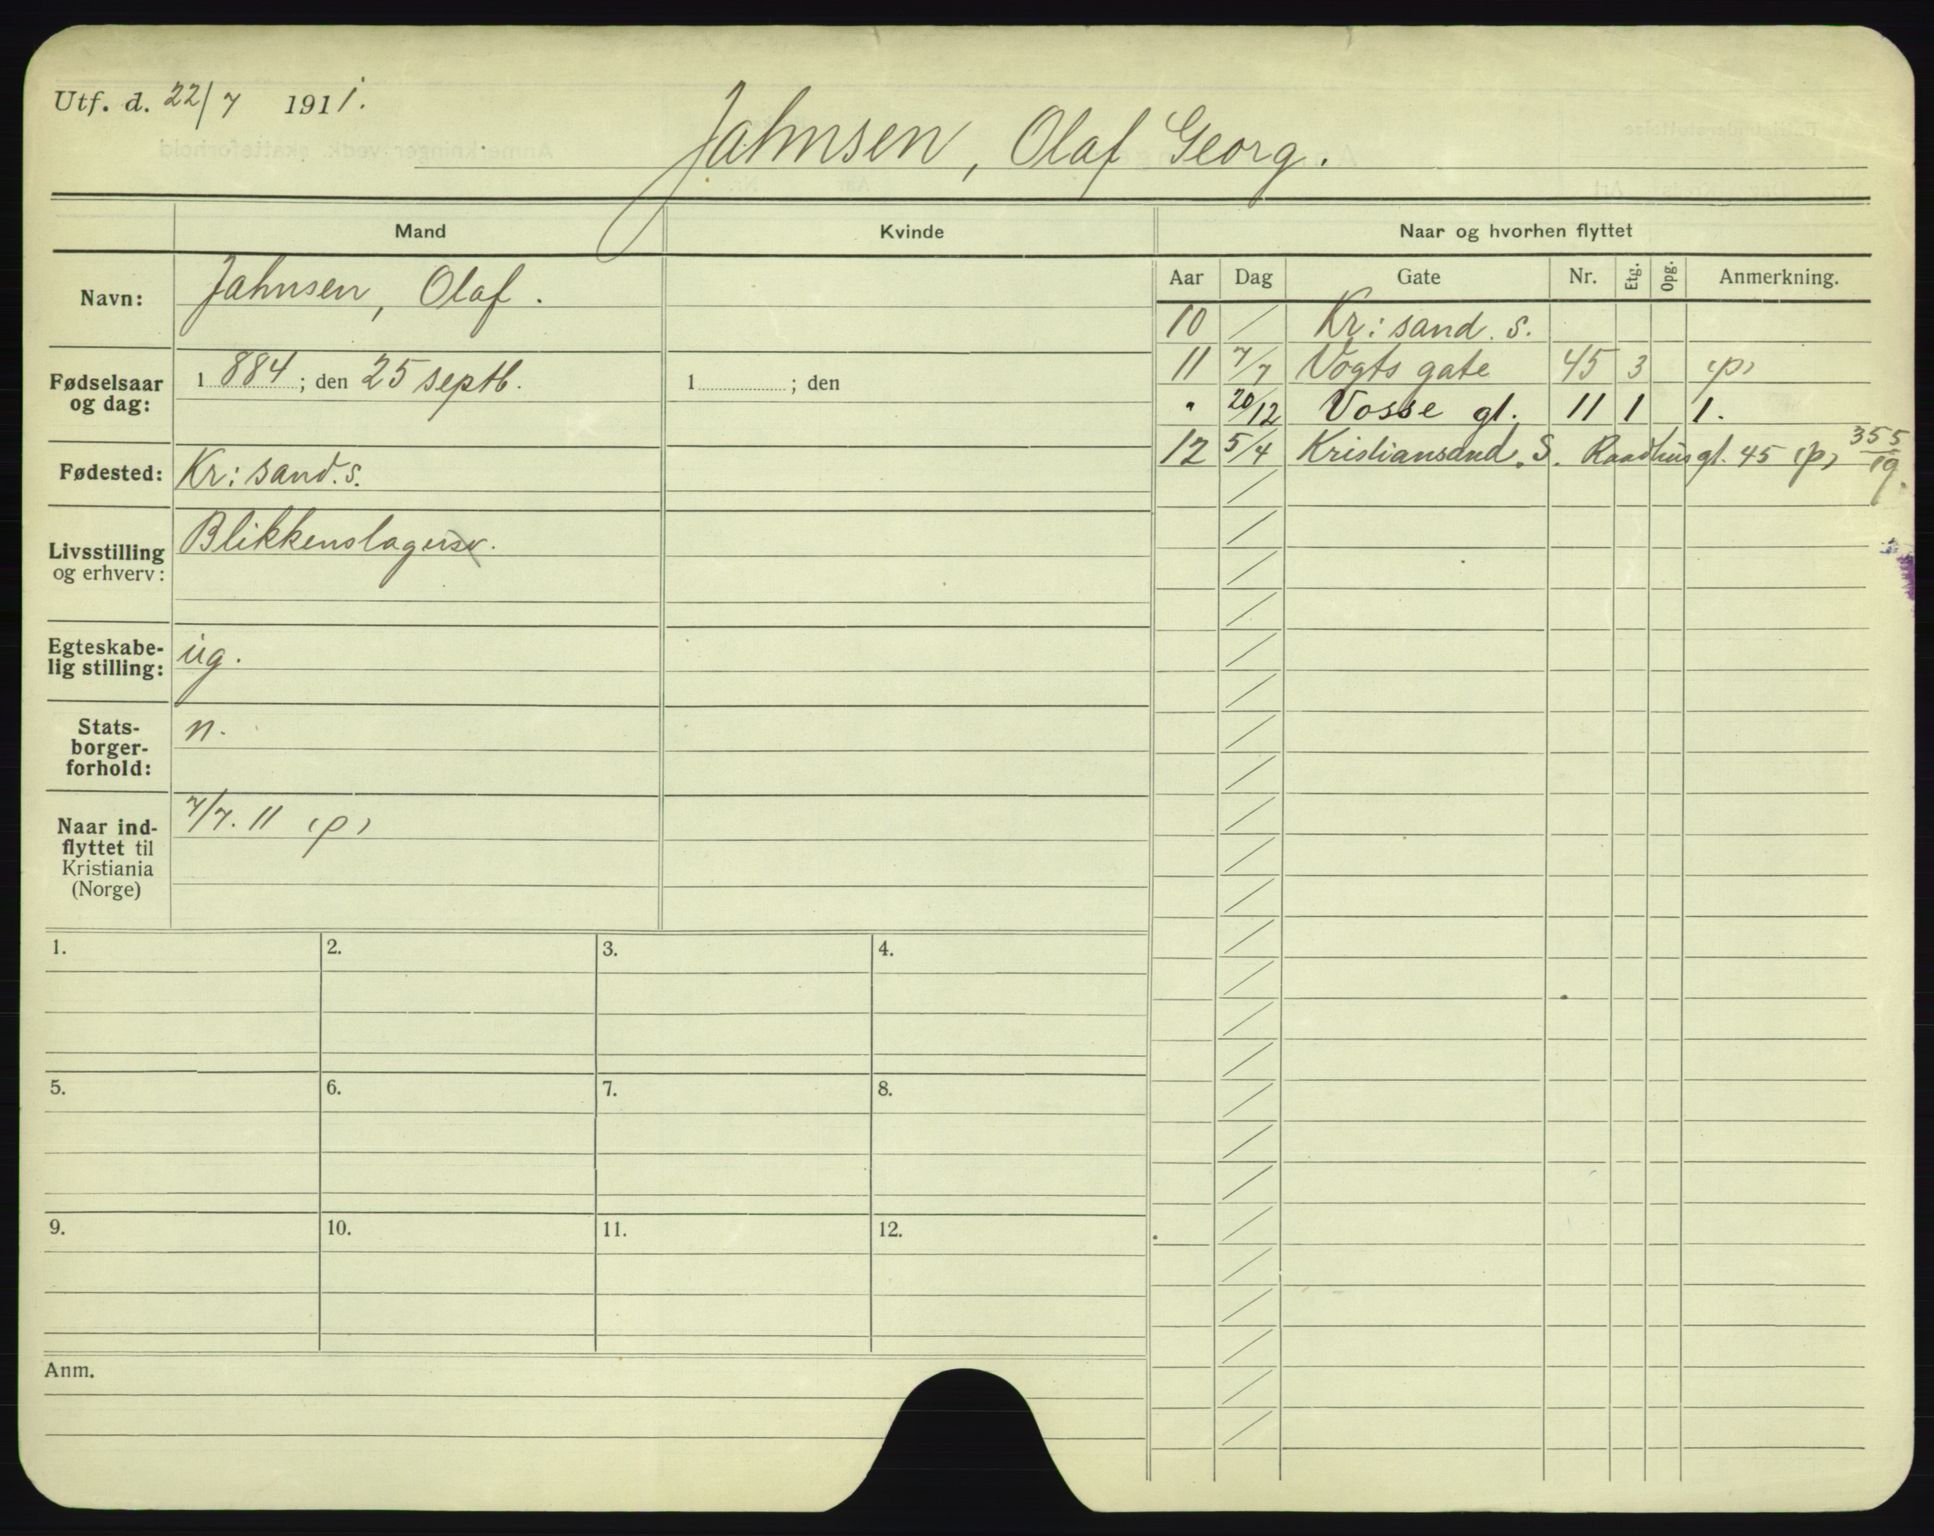 Utf. d. 22/7 1911.
Jahnsen, Olaf Georg.
Mand
Kvinde
Naar og hvorhen flyttet
Navn: Jahnsen, Olaf.
Aar Dag Gate Nr. Etg. Opg. Anmerkning.
10 / Kr: sand. S.
Fødselsaar og dag: 1884; den 25 septb.
1 ; den
11 7/7 Vogts gate 45 3 (p)
" 20/12 Vosse gt. 11 1 1.
12 5/4 Kristiansand. S. Raadhusgt. 45 (p) 355/19.
Fødested: Kr: sand. S.
Livsstilling
og erhverv: Blikkenslagersv.
Egteskabe-
lig stilling: ug.
Stats-
borger-
forhold: n.
Naar ind-
flyttet til
Kristiania
(Norge) 7/7. 11 (p)
1. 2. 3. 4.
5. 6. 7. 8.
9. 10. 11. 12.
Anm.